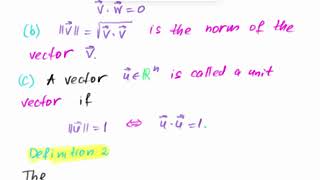 v⃗ · w⃗ = 0
(b) ‖v⃗‖ = √(v⃗ · v⃗) is the norm of the
vector v⃗.
(c) A vector u⃗ ∈ ℝⁿ is called a unit
vector if
‖u⃗‖ = 1 ⇔ u⃗ · u⃗ = 1.
Definition 2
The